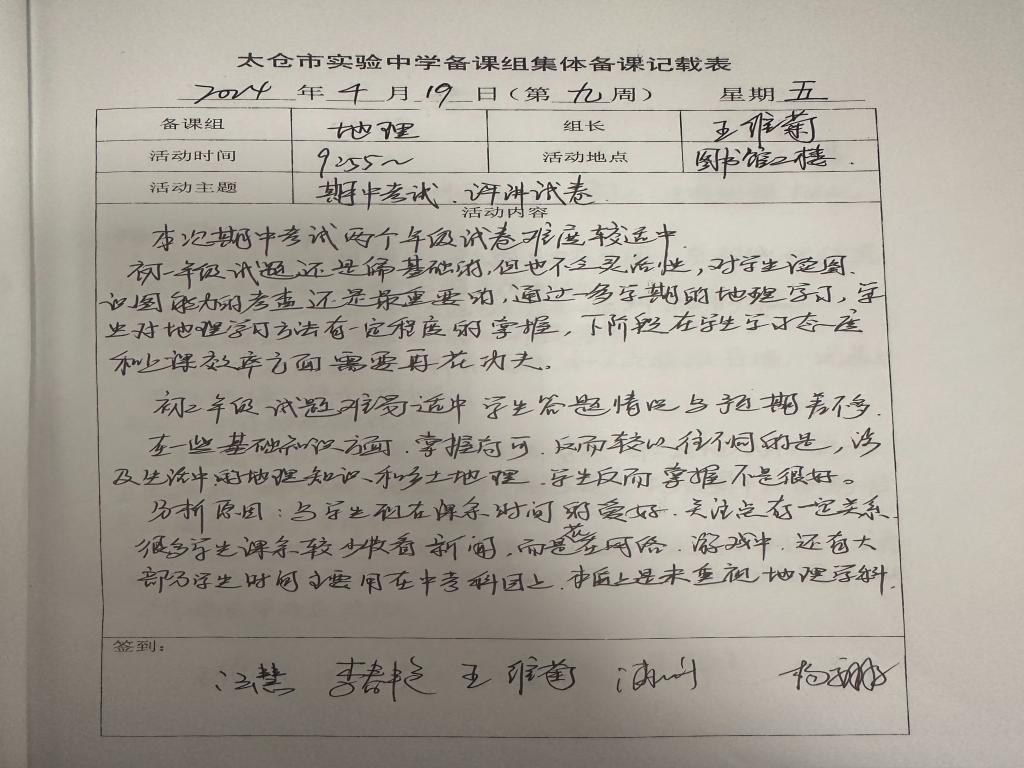 太仓市实验中学备课组集体备课记载表
2024 年 4 月 19 日（第 九 周） 星期 五
备课组 地理 组长 王维菊
活动时间 9:55～ 活动地点 图书馆二楼.
活动主题 期中考试.评讲试卷
活动内容
本次期中考试两个年级试卷难度较适中.
初一年级试题还是偏基础的,但也不乏灵活性,对学生读图、
识图能力的考查还是最重要的,通过一多学期的地理学习,学
生对地理学习方法有一定程度的掌握,下阶段在学生学习态度
和上课效率方面需要再花功夫。
初二年级试题难易适中 学生答题情况与预期差不多.
在一些基础知识方面.掌握尚可.反而较以往不同的是,涉
及生活中的地理知识和乡土地理.学生反而掌握不是很好。
分析原因:与学生现在课余时间的爱好.关注点有一定关系.
很多学生课余较少收看新闻,而是花在网络.游戏中.还有大
部分学生时间主要用在中考科目上.本质上是未重视地理学科.
签到:
汪慧 李春艳 王维菊